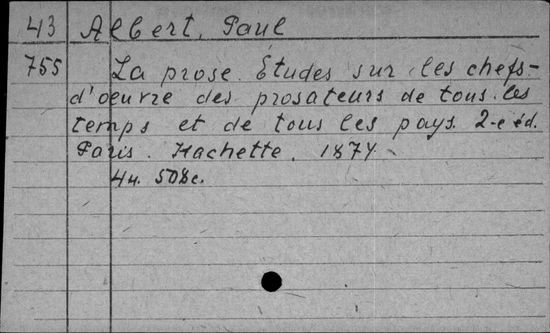 43 Albert, Paul
755 La prose. Études sur les chefs-
d'oeuvre des prosateurs de tous les
temps et de tous les pays. 2-e éd.
Paris. Hachette. 1874
4н. 508с.